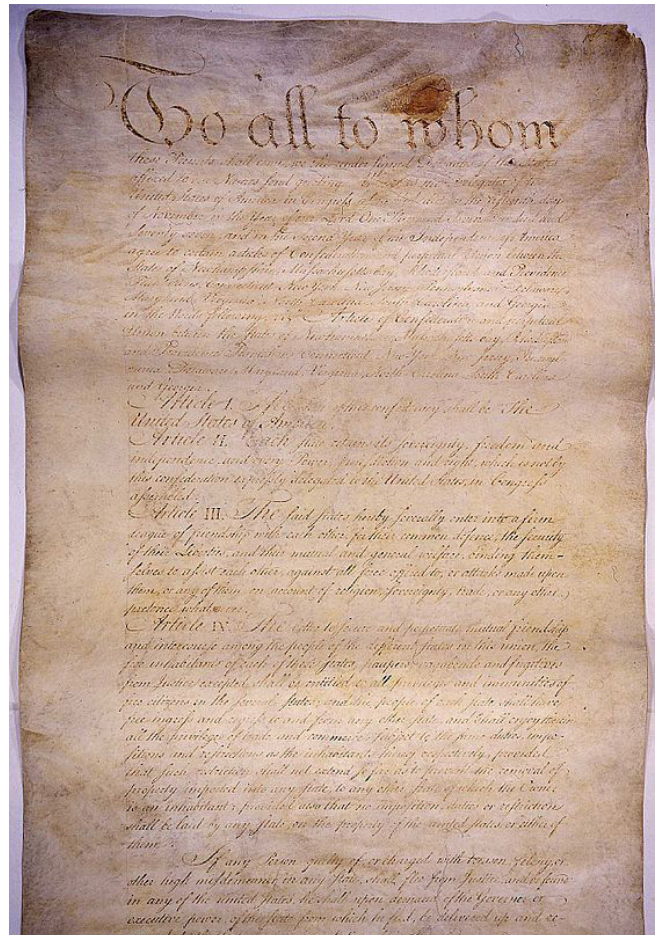 To all to whom
these Presents shall come, we the under signed Delegates of the States
affixed to our Names send greeting. Whereas the Delegates of the
United States of America in Congress assembled did on the fifteenth day
of November in the Year of our Lord One Thousand Seven Hundred and
Seventy seven, and in the Second Year of the Independence of America
agree to certain articles of Confederation and perpetual Union between the
States of Newhampshire, Massachusetts-bay, Rhodeisland and Providence
Plantations, Connecticut, New York, New Jersey, Pennsylvania, Delaware,
Maryland, Virginia, North-Carolina, South-Carolina, and Georgia
in the Words following, viz. Articles of Confederation and perpetual
Union between the States of Newhampshire, Massachusetts-bay, Rhodeisland
and Providence Plantations, Connecticut, New-York, New-Jersey, Pennsyl-
vania, Delaware, Maryland, Virginia, North-Carolina, South-Carolina
and Georgia.
Article I. The Stile of this confederacy shall be "The
United States of America."
Article II. Each state retains its sovereignty, freedom and
independence, and every Power, Jurisdiction and right, which is not by
this confederation expressly delegated to the United States, in Congress
assembled.
Article III. The said states hereby severally enter into a firm
league of friendship with each other, for their common defence, the security
of their Liberties, and their mutual and general welfare, binding them-
selves to assist each other, against all force offered to, or attacks made upon
them, or any of them, on account of religion, sovereignty, trade, or any other
pretence whatever.
Article IV. The better to secure and perpetuate mutual friendship
and intercourse among the people of the different states in this union, the
free inhabitants of each of these states, paupers, vagabonds and fugitives
from Justice excepted, shall be entitled to all privileges and immunities of
free citizens in the several states; and the people of each state shall have
free ingress and regress to and from any other state, and shall enjoy therein
all the privileges of trade and commerce, subject to the same duties, impo-
sitions and restrictions as the inhabitants thereof respectively, provided
that such restriction shall not extend so far as to prevent the removal of
property imported into any state, to any other state of which the Owner
is an inhabitant; provided also that no imposition, duties or restriction
shall be laid by any state, on the property of the united states, or either of
them.
If any Person guilty of, or charged with treason, felony, or
other high misdemeanor in any state, shall flee from Justice, and be found
in any of the united states, he shall upon demand of the Governor or
executive power, of the state from which he fled, be delivered up and re-